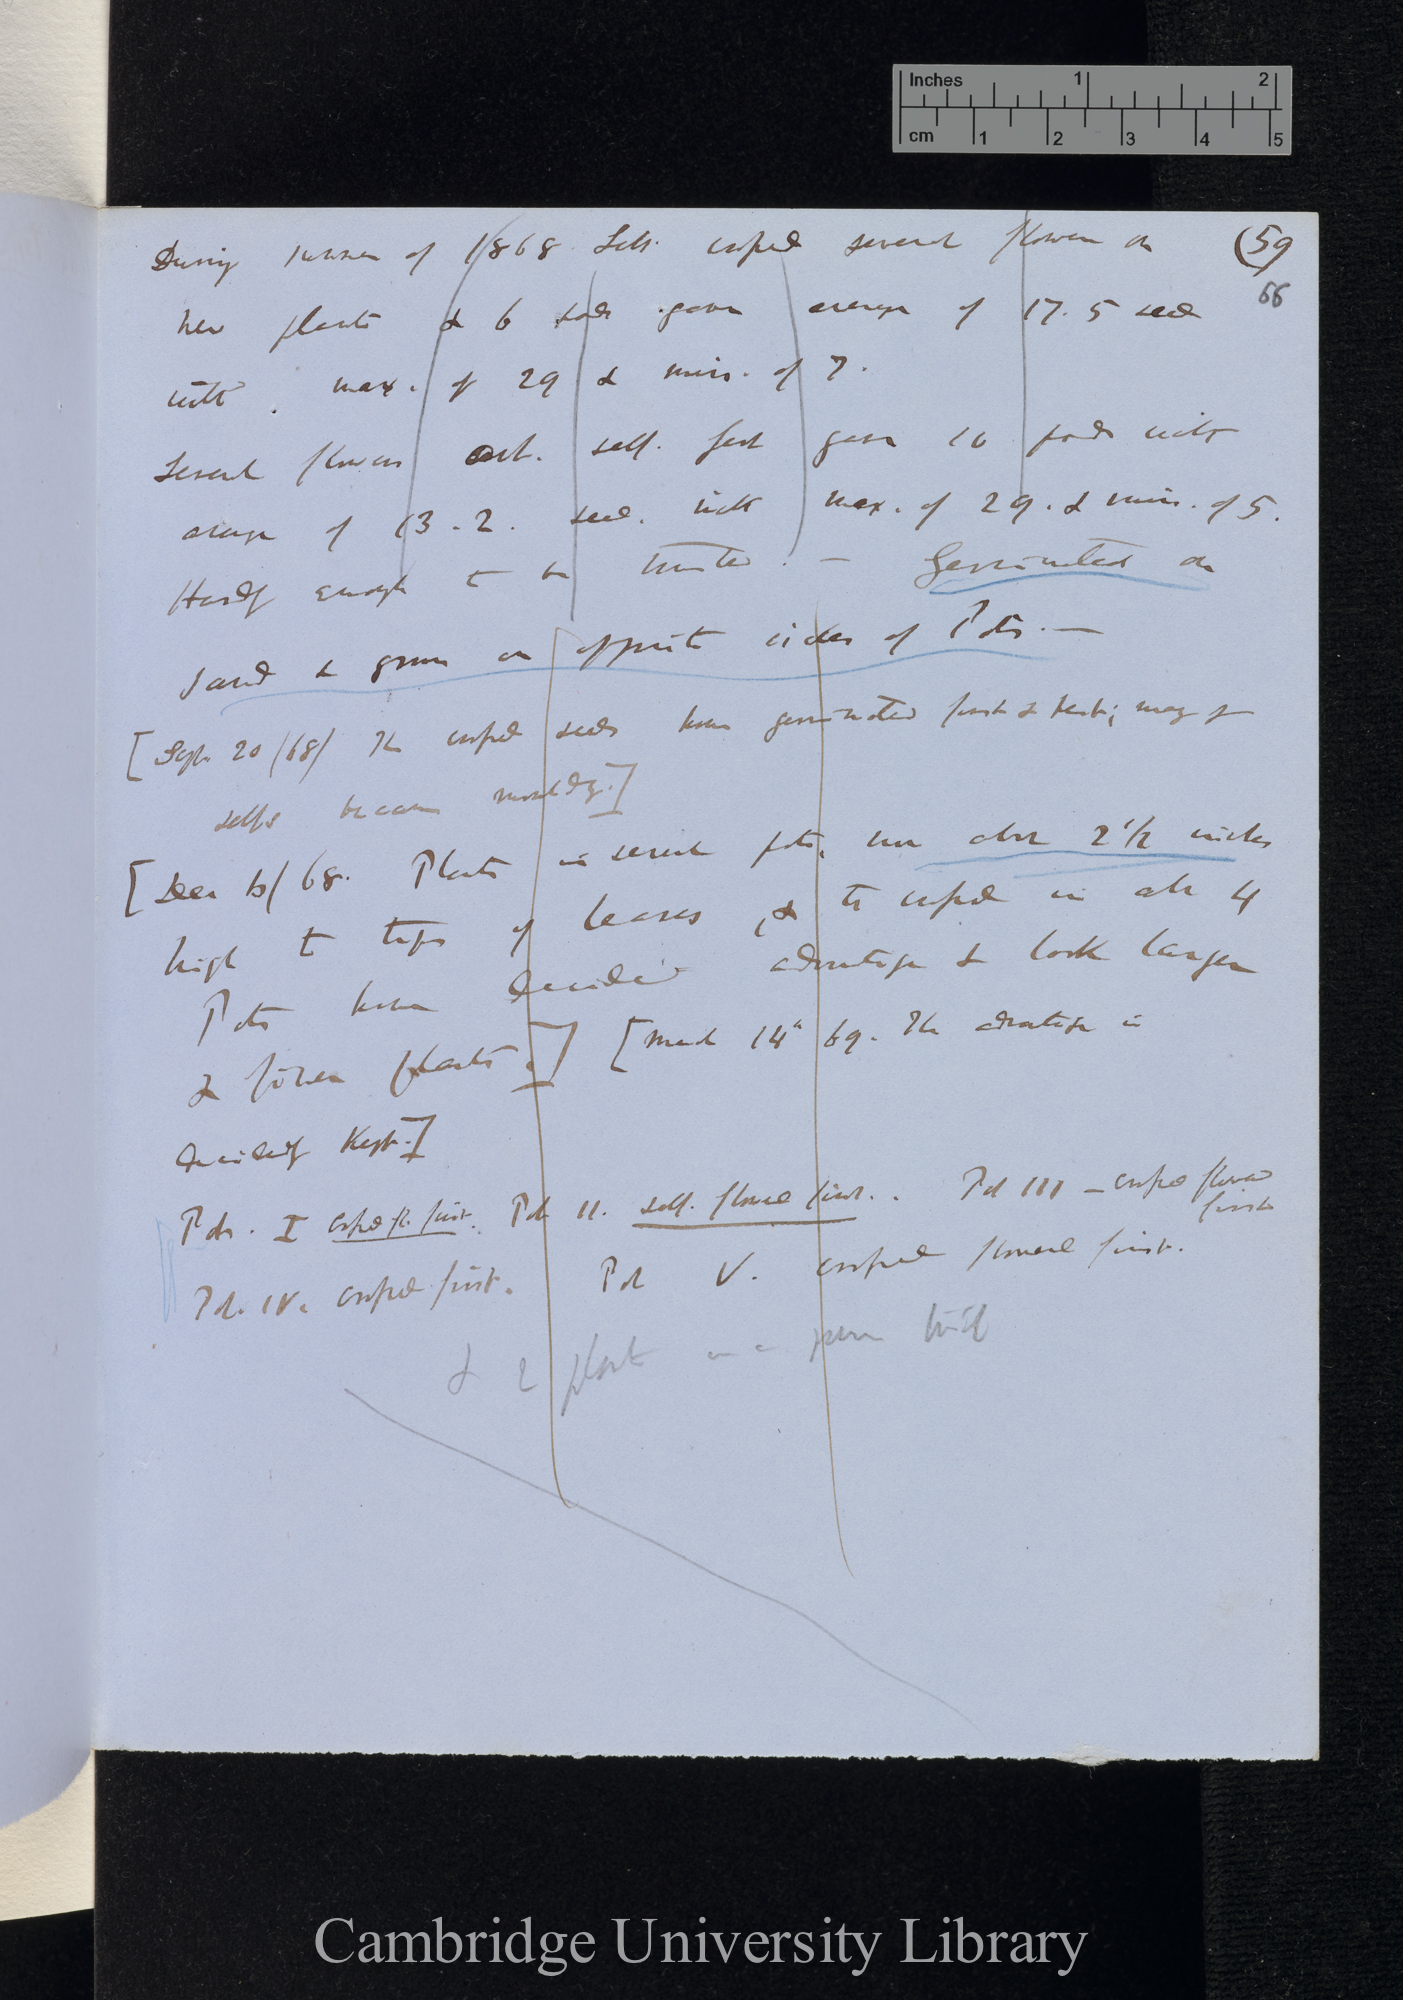 Inches 1 2
cm 1 2 3 4 5
During summer of 1868 crossed several flowers on (59
new plants & 6 pods gave average of 17.5 seed 66
with max. of 29 & min. of 7.
Several flowers self. fert gave 10 pods with
average of 13.2. seed. with max. of 29. & min. of 5.
Hardly enough to be trusted. — Germinated on
sand & grown on opposite sides of Pots. —
[Sept. 20/68/ The crossed seeds have germinated first & best; many of
selfs became mouldy.]
68. Plants in several pots, now about 2 1/2 inches
high to tips of leaves, & the crossed in all 4
Pots have decided advantage & look larger
& finer plants.] [March 14th 69. The advantage is
decidedly kept.]
Pots. I crossed fl. first. Pot II. self. flowered first.. Pot III — crossed flowered
first
Pot. IV. crossed first. Pot V. crossed flowered first.
& 2 plants
Cambridge University Library